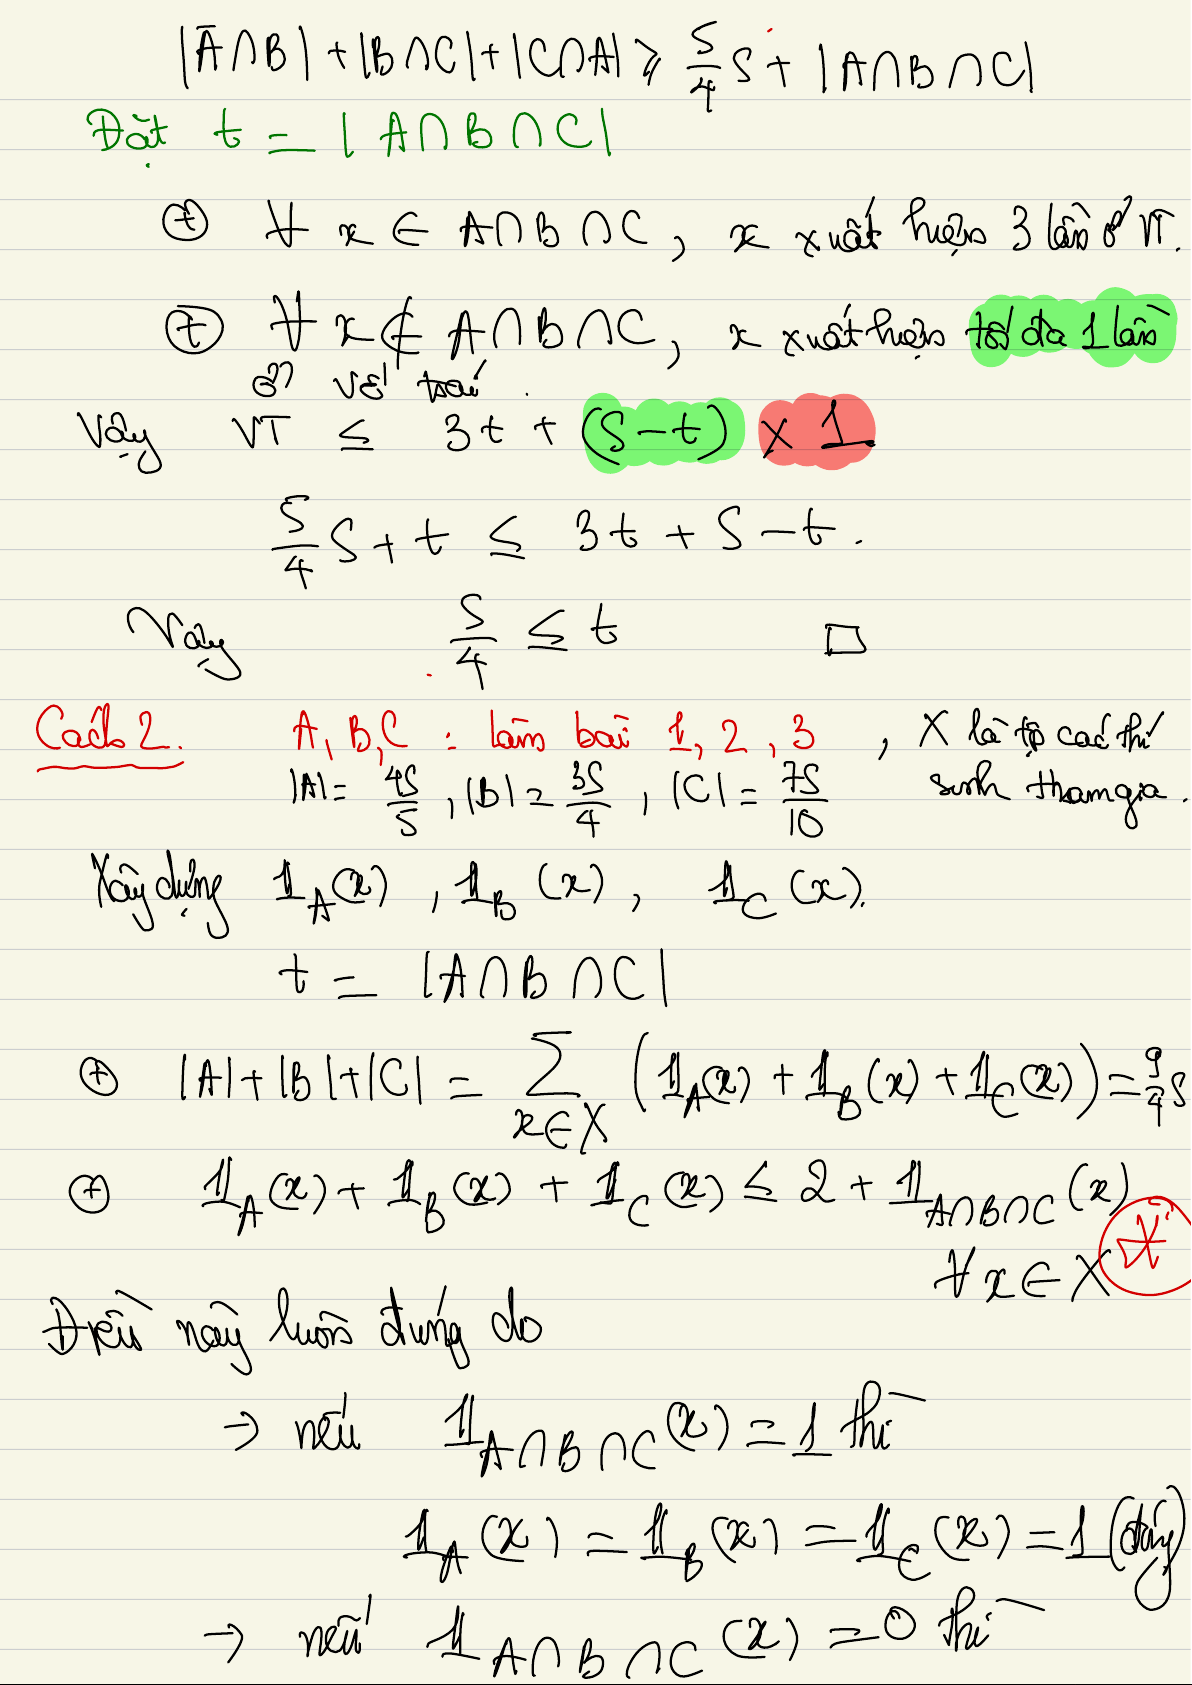 |A∩B| + |B∩C| + |C∩A| ≥ 5/4 S + |A∩B∩C|
Đặt t = |A∩B∩C|
⊕ ∀ x ∈ A∩B∩C, x xuất hiện 3 lần ở VT.
⊕ ∀ x ∉ A∩B∩C, x xuất hiện tối đa 1 lần
ở vế trái.
Vậy VT ≤ 3t + (S-t) × 1
5/4 S + t ≤ 3t + S - t.
Vậy S/4 ≤ t □
Cách 2. A, B, C : làm bài 1, 2, 3 , X là tập các thí
|A| = 4S/5, |B| = 3S/4, |C| = 7S/10 sinh tham gia.
Xây dựng 𝟙_A(x), 𝟙_B(x), 𝟙_C(x).
t = |A∩B∩C|
⊕ |A| + |B| + |C| = ∑_{x∈X} (𝟙_A(x) + 𝟙_B(x) + 𝟙_C(x)) = 9/4 S
⊕ 𝟙_A(x) + 𝟙_B(x) + 𝟙_C(x) ≤ 2 + 𝟙_{A∩B∩C}(x)
∀x∈X (*)
Điều này luôn đúng do
→ nếu 𝟙_{A∩B∩C}(x) = 1 thì
𝟙_A(x) = 𝟙_B(x) = 𝟙_C(x) = 1 (đúng)
→ nếu 𝟙_{A∩B∩C}(x) = 0 thì